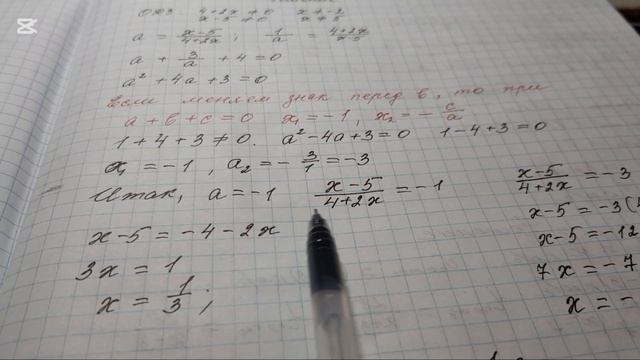 ОДЗ 4+2x≠0 x≠-2
x-5≠0 x≠5
a = \frac{x-5}{4+2x}; \frac{1}{a} = \frac{4+2x}{x-5}
a + \frac{3}{a} + 4 = 0
a² + 4a + 3 = 0
Если меняем знак перед b, то при
a + b + c = 0 x₁ = -1, x₂ = -\frac{c}{a}
1 + 4 + 3 ≠ 0. a² - 4a + 3 = 0 1 - 4 + 3 = 0
x₁ = -1, a₂ = -\frac{3}{1} = -3
Итак, a = -1 \frac{x-5}{4+2x} = -1
x - 5 = -4 - 2x
3x = 1
x = \frac{1}{3};
\frac{x-5}{4+2x} = -3
x - 5 = -3(
x - 5 = -12
7x = -7
x = -